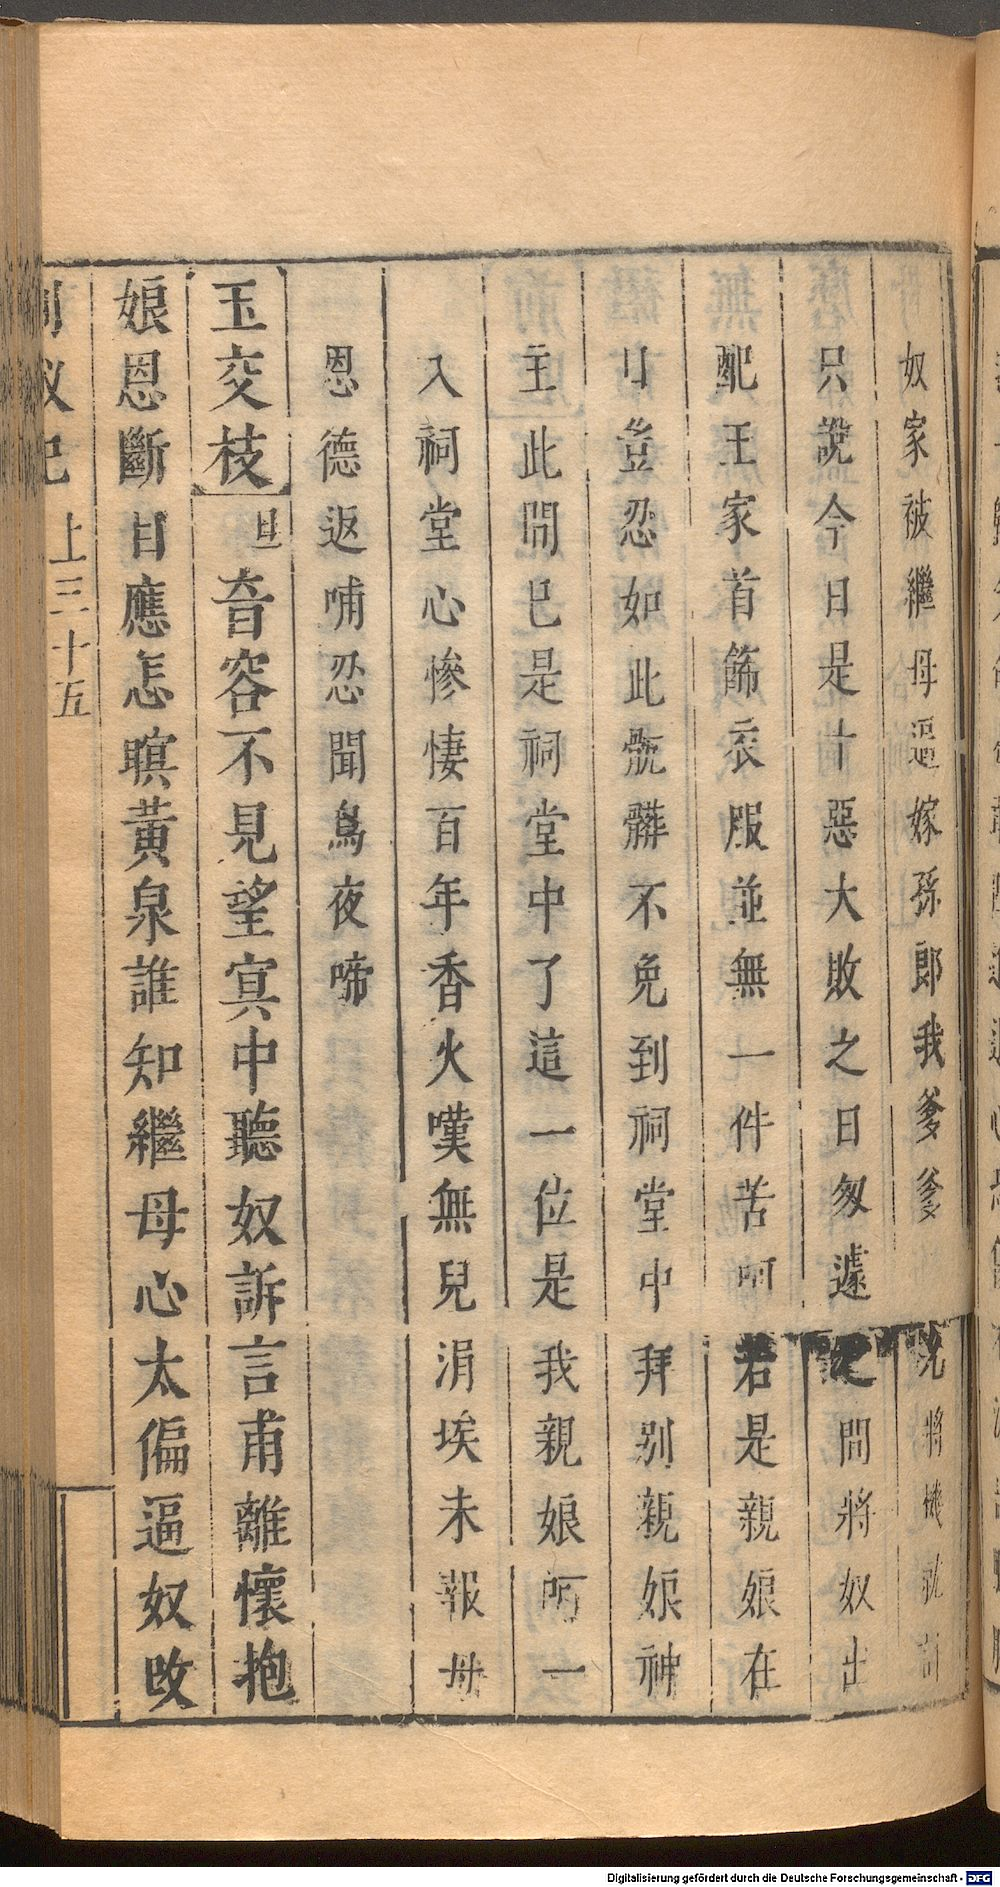 奴家被繼母逼嫁孫郎我爹爹　將機就計
只說今日是十惡大敗之日匆遽　間將奴出
配王家首飾衣服並無一件苦呵若是親娘在
日豈忍如此骯髒不免到祠堂中拜別親娘神
主此間已是祠堂中了這一位是我親娘呵一
入祠堂心慘悽百年香火嘆無兒涓埃未報母
恩德返哺忍聞鳥夜啼
玉交枝 旦 音容不見望㝠中聽奴訴言甫離懷抱
娘恩斷目應怎瞑黃泉誰知繼母心太偏逼奴改
釵記 上三十五
Digitalisierung gefördert durch die Deutsche Forschungsgemeinschaft - DFG